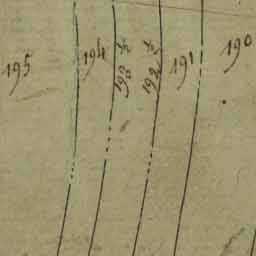 195
194
193 ½
192 ½
191
190